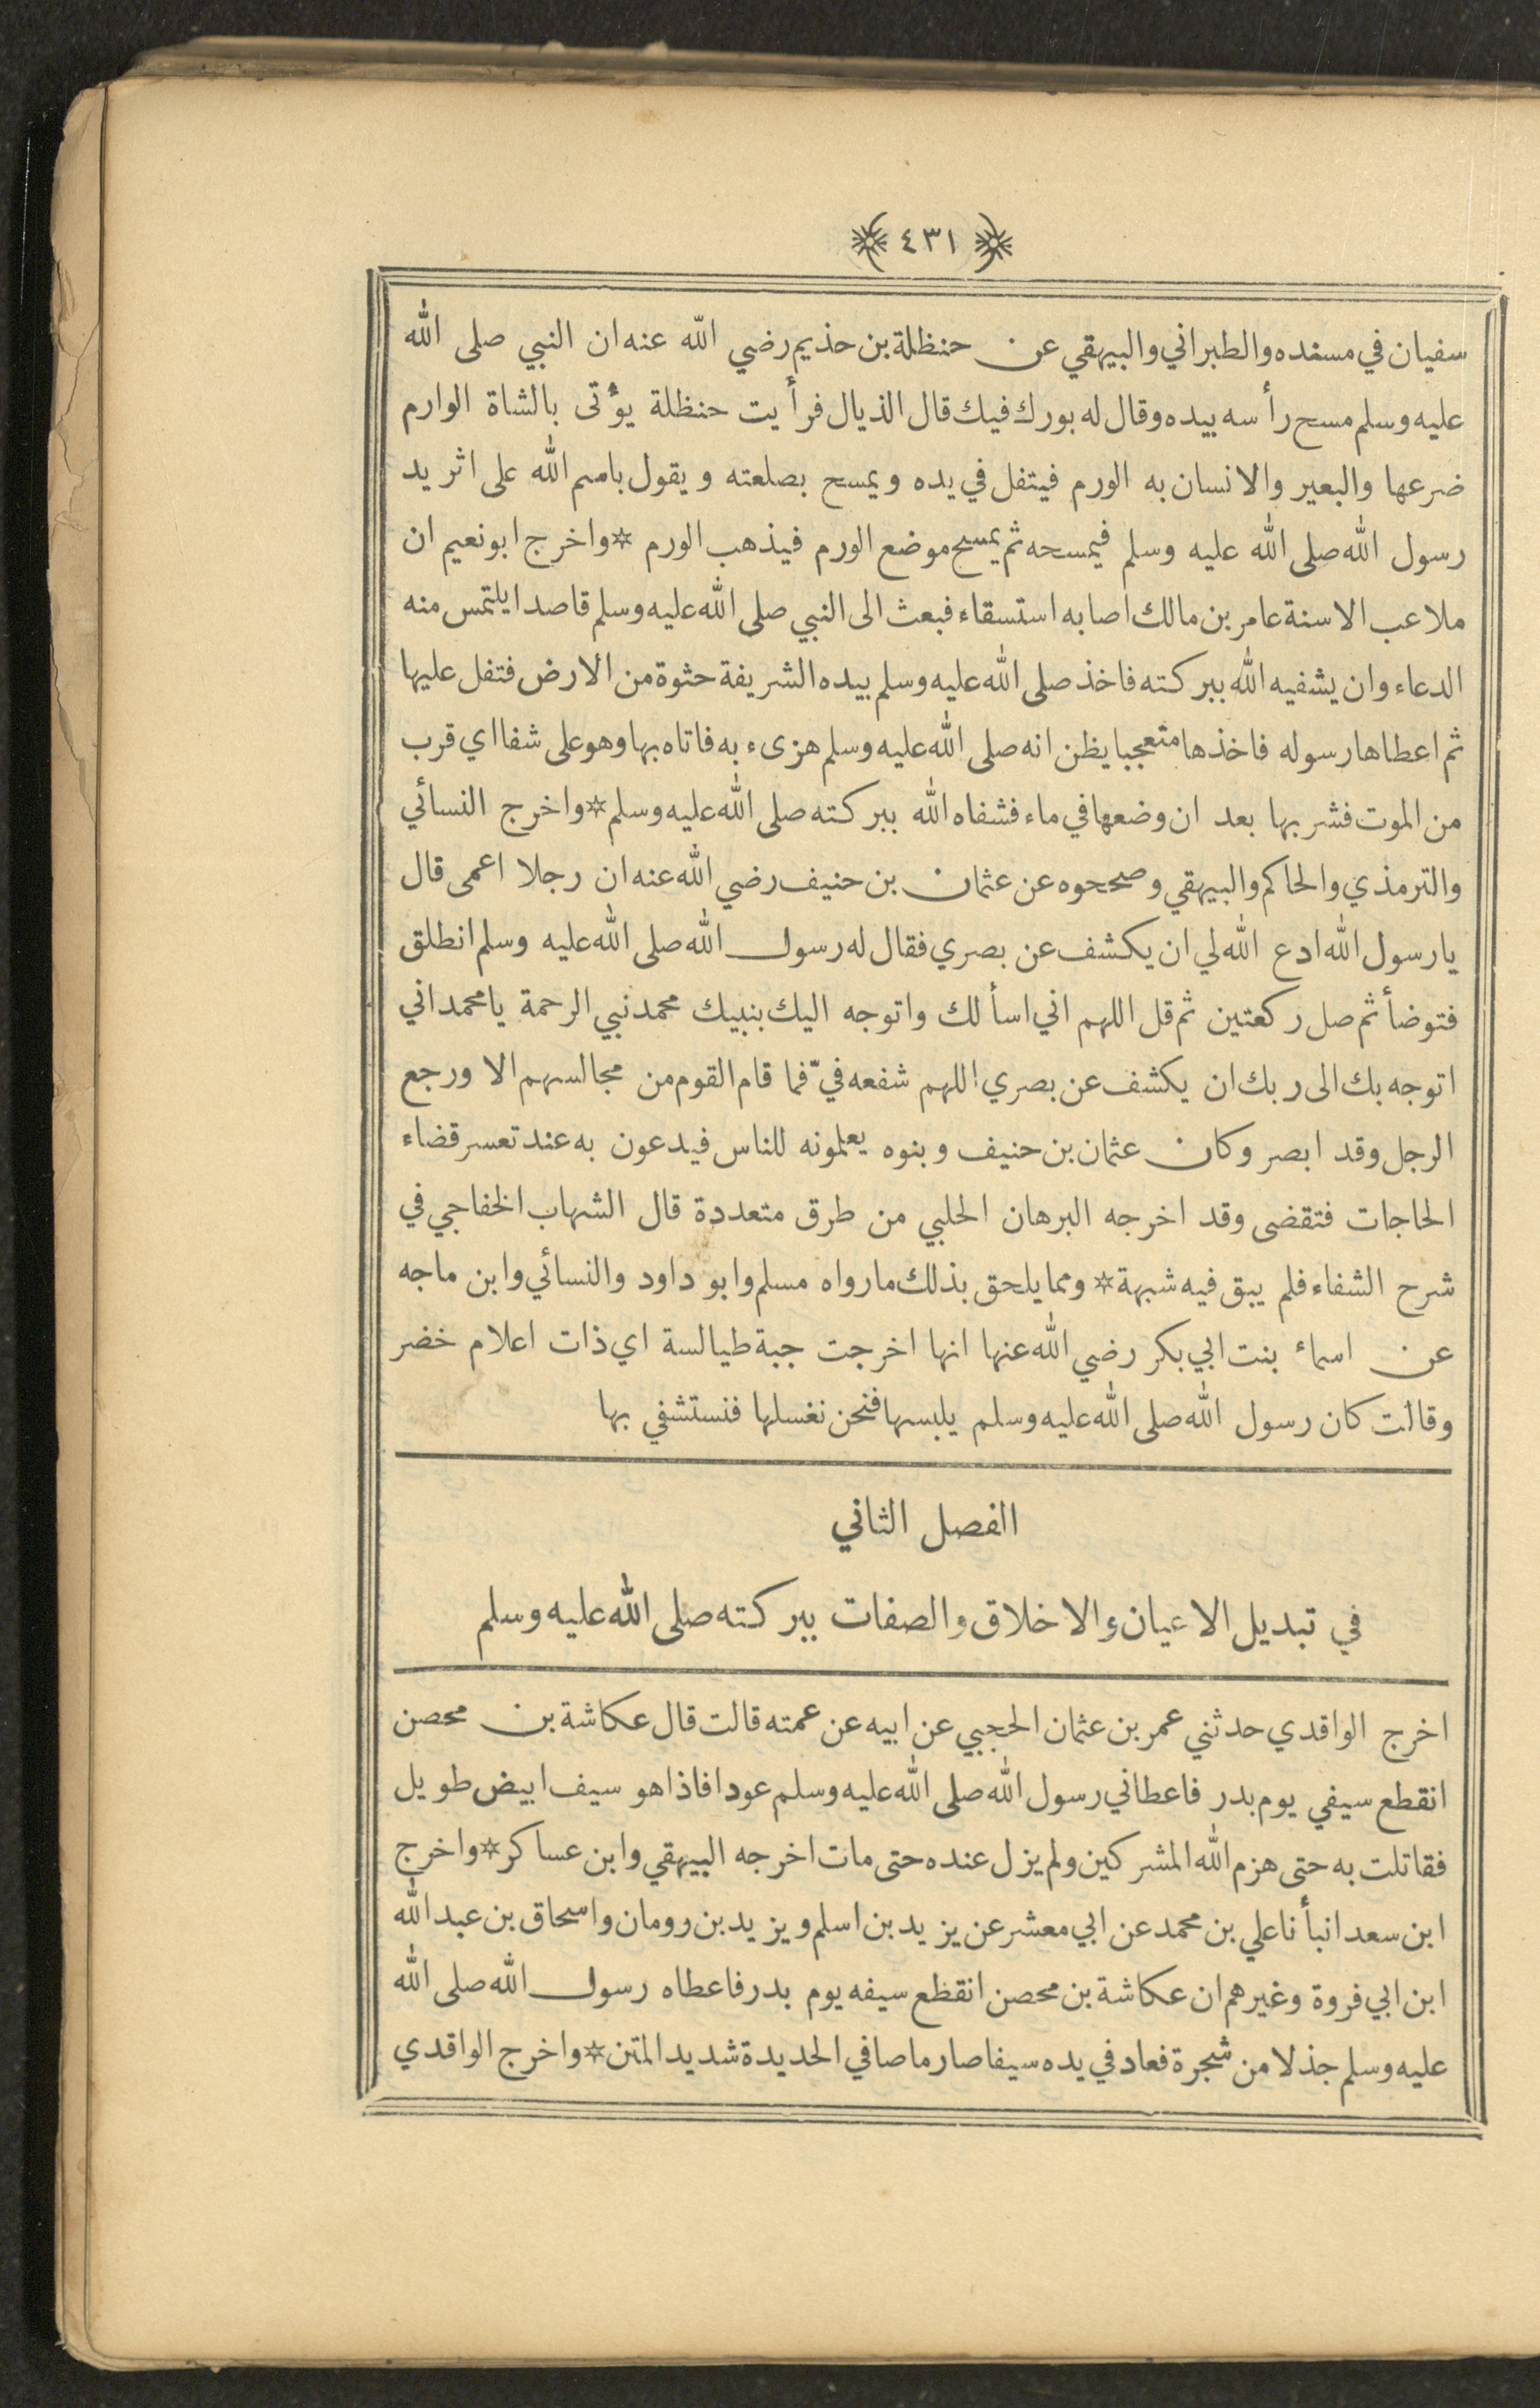 ﴿ ٤٣١ ﴾
سفيان في مسنده والطبراني والبيهقي عن حنظلة بن حذيم رضي الله عنه ان النبي صلى الله
عليه وسلم مسح رأسه بيده وقال له بورك فيك قال الذيال فرأيت حنظلة يؤتى بالشاة الوارم
ضرعها والبعير والانسان به الورم فيتفل في يده ويمسح بصلعته ويقول باسم الله على اثر يد
رسول الله صلى الله عليه وسلم فيمسحه ثم يمسح موضع الورم فيذهب الورم * واخرج ابو نعيم ان
ملاعب الاسنة عامر بن مالك اصابه استسقاء فبعث الى النبي صلى الله عليه وسلم قاصدا يلتمس منه
الدعاء وان يشفيه الله ببركته فاخذ صلى الله عليه وسلم بيده الشريفة حثوة من الارض فتفل عليها
ثم اعطاها رسوله فاخذها متعجبا يظن انه صلى الله عليه وسلم هزىء به فاتاه بها وهو على شفا اي قرب
من الموت فشربها بعد ان وضعها في ماء فشفاه الله ببركته صلى الله عليه وسلم * واخرج النسائي
والترمذي والحاكم والبيهقي وصححوه عن عثمان بن حنيف رضي الله عنه ان رجلا اعمى قال
يا رسول الله ادع الله لي ان يكشف عن بصري فقال له رسول الله صلى الله عليه وسلم انطلق
فتوضأ ثم صل ركعتين ثم قل اللهم اني اسألك واتوجه اليك بنبيك محمد نبي الرحمة يا محمد اني
اتوجه بك الى ربك ان يكشف عن بصري اللهم شفعه فيّ فما قام القوم من مجالسهم الا ورجع
الرجل وقد ابصر وكان عثمان بن حنيف وبنوه يعلمونه للناس فيدعون به عند تعسر قضاء
الحاجات فتقضى وقد اخرجه البرهان الحلبي من طرق متعددة قال الشهاب الخفاجي في
شرح الشفاء فلم يبق فيه شبهة * ومما يلحق بذلك ما رواه مسلم وابو داود والنسائي وابن ماجه
عن اسماء بنت ابي بكر رضي الله عنها انها اخرجت جبة طيالسة اي ذات اعلام خضر
وقالت كان رسول الله صلى الله عليه وسلم يلبسها فنحن نغسلها فنستشفي بها
الفصل الثاني
في تبديل الاعيان والاخلاق والصفات ببركته صلى الله عليه وسلم
اخرج الواقدي حدثني عمر بن عثمان الحجبي عن ابيه عن عمته قالت قال عكاشة بن محصن
انقطع سيفي يوم بدر فاعطاني رسول الله صلى الله عليه وسلم عودا فاذا هو سيف ابيض طويل
فقاتلت به حتى هزم الله المشركين ولم يزل عنده حتى مات اخرجه البيهقي وابن عساكر * واخرج
ابن سعد انبأنا علي بن محمد عن ابي معشر عن يزيد بن اسلم ويزيد بن رومان واسحاق بن عبد الله
ابن ابي فروة وغيرهم ان عكاشة بن محصن انقطع سيفه يوم بدر فاعطاه رسول الله صلى الله
عليه وسلم جذلا من شجرة فعاد في يده سيفا صارما صافي الحديدة شديد المتن * واخرج الواقدي